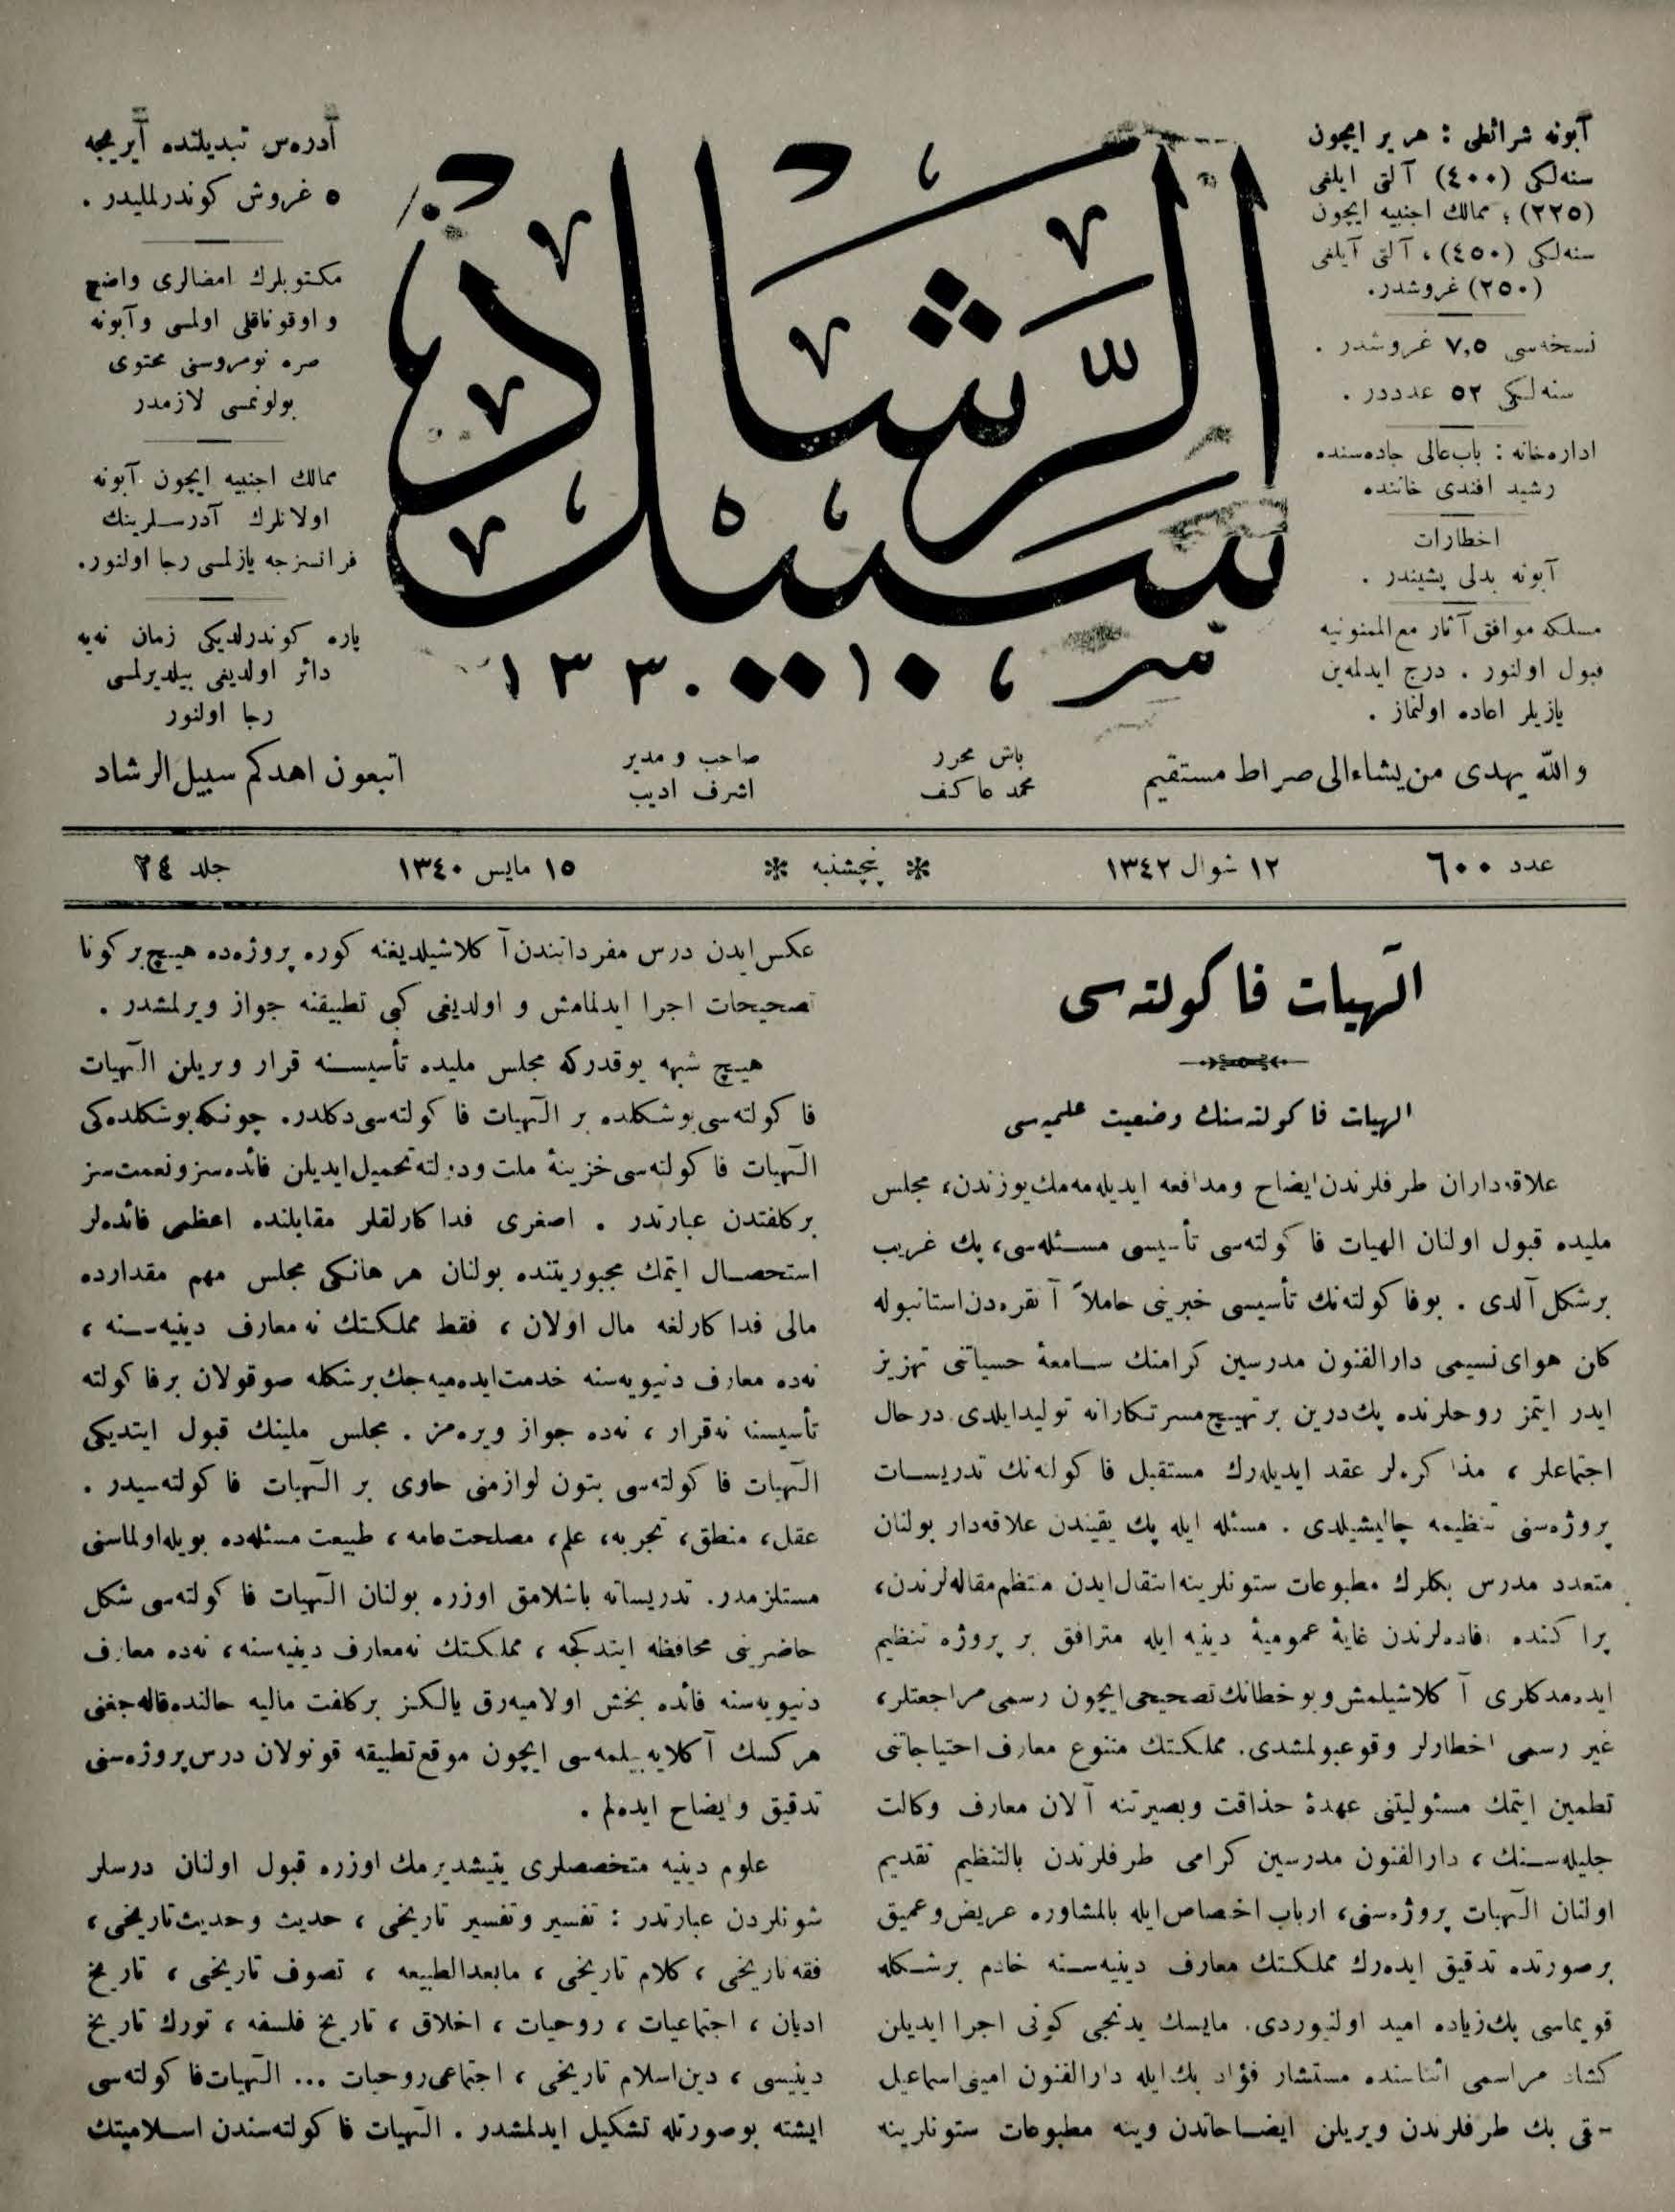 آبونه شرائطی : هر یر ایچون
سنه‌لکی (٤٠٠) آلتی ایلغی
(٢٢٥) ؛ ممالك اجنبیه ایچون
سنه‌لکی (٤٥٠) ، آلتی آیلغی
(٢٥٠) غروشدر.
نسخه‌سی ٧,٥ غروشدر .
سنه‌لیکی ٥٢ عدددر .
اداره‌خانه : باب‌عالی جاده‌سنده
رشید افندی خاننده
اخطارات
آبونه بدلی پشیندر .
مسلکه موافق آثار مع‌الممنونیه
قبول اولنور . درج ایدلمه‌ین
یازیلر اعاده اولنماز .
سبیل الرشاد
١٣٣٠
آدره‌س تبدیلنده آیریجه
٥ غروش کوندرلملیدر .
مکتوبلرك امضالری واضح
و اوقوناقلی اولمسی وآبونه
صره نومروسنی محتوی
بولونمسی لازمدر
ممالك اجنبیه ایچون آبونه
اولانلرك آدرسلرینك
فرانسزجه یازلمسی رجا اولنور.
پاره کوندرلدیکی زمان نه‌یه
دائر اولدیغی بیلدیرلمسی
رجا اولنور
والله یهدی من یشاء الی صراط مستقیم
باش محرر
محمد عاکف
صاحب و مدیر
اشرف ادیب
اتبعون اهدکم سبیل الرشاد
عدد ٦٠٠
١٢ شوال ١٣٤٢
* پنچشنبه *
١٥ مایس ١٣٤٠
جلد ٢٤
الٓهیات فاکولته‌سی
الهیات فاکولته‌سنك وضعیت علمیه‌سی
علاقه‌داران طرفلرندن ایضاح ومدافعه ایدیله‌مه‌مك یوزندن، مجلس
ملیده قبول اولنان الهیات فاکولته‌سی تأسیسی مسئله‌سی، پك غریب
برشکل آلدی . بوفاکولته‌نك تأسیسی خبرینی حاملاً آنقره‌دن استانبوله
کلن هوای نسیمی دارالفنون مدرسین کرامنك سامعهٔ حسیاتنی تهزیز
ایدر ایتمز روحلرنده پك درین بر تهییج مسرتکارانه تولیدایلدی. درحال
اجتماعلر ، مذاکره‌لر عقد ایدیله‌رك مستقبل فاکولته‌نك تدریسات
پروژه‌سنی تنظیمه چالیشیلدی . مسئله ایله پك یقیندن علاقه‌دار بولنان
متعدد مدرس بکلرك مطبوعات ستونلرینه انتقال ایدن منتظم مقاله‌لرندن،
پراکنده افاده‌لرندن غایهٔ عمومیهٔ دینیه ایله مترافق بر پروژه تنظیم
ایده‌مدکلری آکلاشیلمش و بو خطانك تصحیحی ایچون رسمی مراجعتلر،
غیر رسمی اخطارلر وقوعبولمشدی. مملکتك متنوع معارف احتیاجاتنی
تطمین ایتمك مسئولیتنی عهدهٔ حذاقت وبصیرتنه آلان معارف وکالت
جلیله‌سنك ، دارالفنون مدرسین کرامی طرفلرندن بالتنظیم تقدیم
اولنان الٓهیات پروژه‌سنی، ارباب اختصاص ایله بالمشاوره عریض وعمیق
برصورتده تدقیق ایده‌رك مملکتك معارف دینیه‌سنه خادم برشکله
قویماسی پك زیاده امید اولنیوردی. مایسك یدنجی کونی اجرا ایدیلن
کشاد مراسمی اثناسنده مستشار فؤاد بك ایله دارالفنون امینی اسماعیل
حقی بك طرفلرندن ویریلن ایضاحاتدن وینه مطبوعات ستونلرینه
عکس ایدن درس مفرداتندن آکلاشیلدیغنه کوره پروژه‌ده هیچ برکونا
تصحیحات اجرا ایدلمامش و اولدیغی کبی تطبیقنه جواز ویرلمشدر .
هیچ شبهه یوقدرکه مجلس ملیده تأسیسنه قرار ویریلن الٓهیات
فاکولته‌سی بوشکلده بر الٓهیات فاکولته‌سی دکلدر. چونکه بوشکلده‌کی
الٓهیات فاکولته‌سی خزینهٔ ملت ودولته تحمیل ایدیلن فائده‌سز ونعمت‌سز
برکلفتدن عبارتدر . اصغری فداکارلقلر مقابلنده اعظمی فائده‌لر
استحصال ایتمك مجبوریتنده بولنان هر هانکی مجلس مهم مقدارده
مالی فداکارلغه مال اولان ، فقط مملکتك نه معارف دینیه‌سنه ،
نه‌ده معارف دنیویه‌سنه خدمت ایده‌میه‌جك برشکله صوقولان برفاکولته
تأسیسنه نه‌قرار ، نه‌ده جواز ویره‌مز . مجلس ملینك قبول ایتدیکی
الٓهیات فاکولته‌سی بتون لوازمنی حاوی بر الٓهیات فاکولته‌سیدر .
عقل، منطق، تجربه، علم، مصلحت‌عامه، طبیعت مسئله‌ده بویله اولماسنی
مستلزمدر. تدریساته باشلامق اوزره بولنان الٓهیات فاکولته‌سی شکل
حاضرینی محافظه ایتدکجه ، مملکتك نه‌معارف دینیه‌سنه، نه‌ده معارف
دنیویه‌سنه فائده بخش اولامیه‌رق یالکز برکلفت مالیه حالنده‌قاله‌جغنی
هرکسك آکلایه‌بیلمه‌سی ایچون موقع تطبیقه قونولان درس پروژه‌سنی
تدقیق وایضاح ایده‌لم .
علوم دینیه متخصصلری یتیشدیرمك اوزره قبول اولنان درسلر
شونلردن عبارتدر : تفسیر وتفسیر تاریخی ، حدیث وحدیث تاریخی ،
فقه تاریخی ، کلام تاریخی ، مابعدالطبیعه ، تصوف تاریخی ، تاریخ
ادیان ، اجتماعیات ، روحیات ، اخلاق ، تاریخ فلسفه ، تورك تاریخ
دینیسی ، دین اسلام تاریخی ، اجتماعی روحیات ... الٓهیات فاکولته‌سی
ایشته بوصورتله تشکیل ایدلمشدر . الٓهیات فاکولته‌سندن اسلامیتك